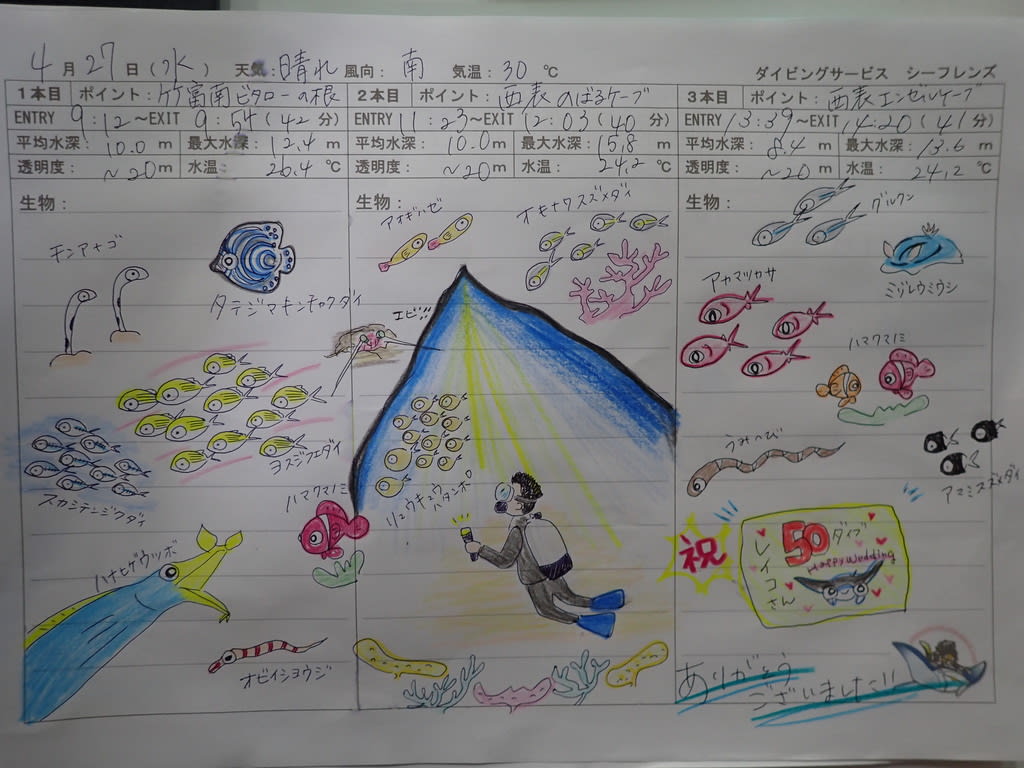 4月27日(水) 天気:晴れ 風向:南 気温:30℃
ダイビングサービス シーフレンズ
1本目 ポイント:竹富南ビタローの根
ENTRY 9:12~EXIT 9:54(42分)
平均水深:10.0m 最大水深:12.4m
透明度:~20m 水温:26.4℃
生物:
モンアナゴ
タテジマキンチャクダイ
ヨスジフエダイ
スカシテンジクダイ
ハマクマノミ
ハナヒゲウツボ
オビイショウジ
2本目 ポイント:西表のばるケーブ
ENTRY 11:23~EXIT 12:03(40分)
平均水深:10.0m 最大水深:15.8m
透明度:~20m 水温:24.2℃
生物:
アオギハゼ
オキナワスズメダイ
エビ!!!
リュウキュウハタンポ
3本目 ポイント:西表エンゼルケーブ
ENTRY 13:39~EXIT 14:20(41分)
平均水深:8.4m 最大水深:13.6m
透明度:~20m 水温:24.2℃
生物:
グルクン
ミゾレウミウシ
アカマツカサ
ハマクマノミ
うみへび
アマミスズメダイ
祝
50ダイブ
Happy wedding
レイコさん
ありがとう
ございました!!